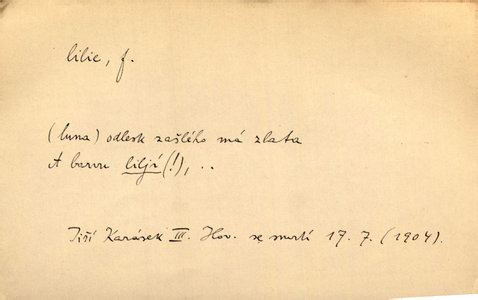 lilie, f.
(luna) odlesk zašlého má zlata
A barvu liljí (!), ..
Jiří Karásek III. Hov. se smrtí 17. 7. (1904).